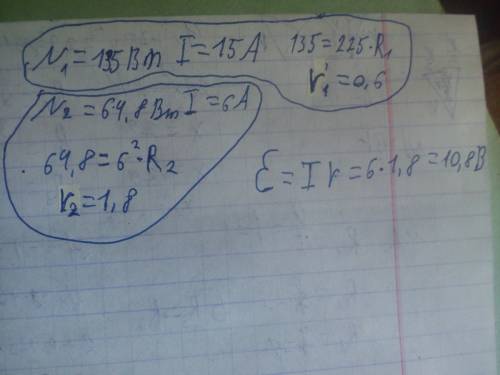 N₁=135Вт I=15A 135=225·R₁
r₁=0,6
N₂=64,8Вт I=6A
64,8=6²·R₂
r₂=1,8
Ɛ=Ir=6·1,8=10,8В